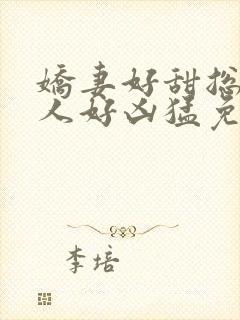 嬌妻好甜總
人好凶猛免
李培